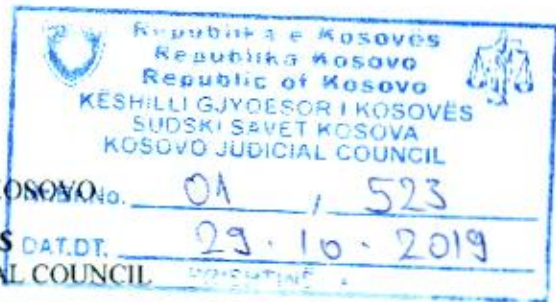 Republika e Kosovës
Republika Kosovo
Republic of Kosovo
KËSHILLI GJYQËSOR I KOSOVËS
SUDSKI SAVET KOSOVA
KOSOVO JUDICIAL COUNCIL
KOSOVO No. 01 / 523
S DAT.DT. 29.10.2019
AL COUNCIL